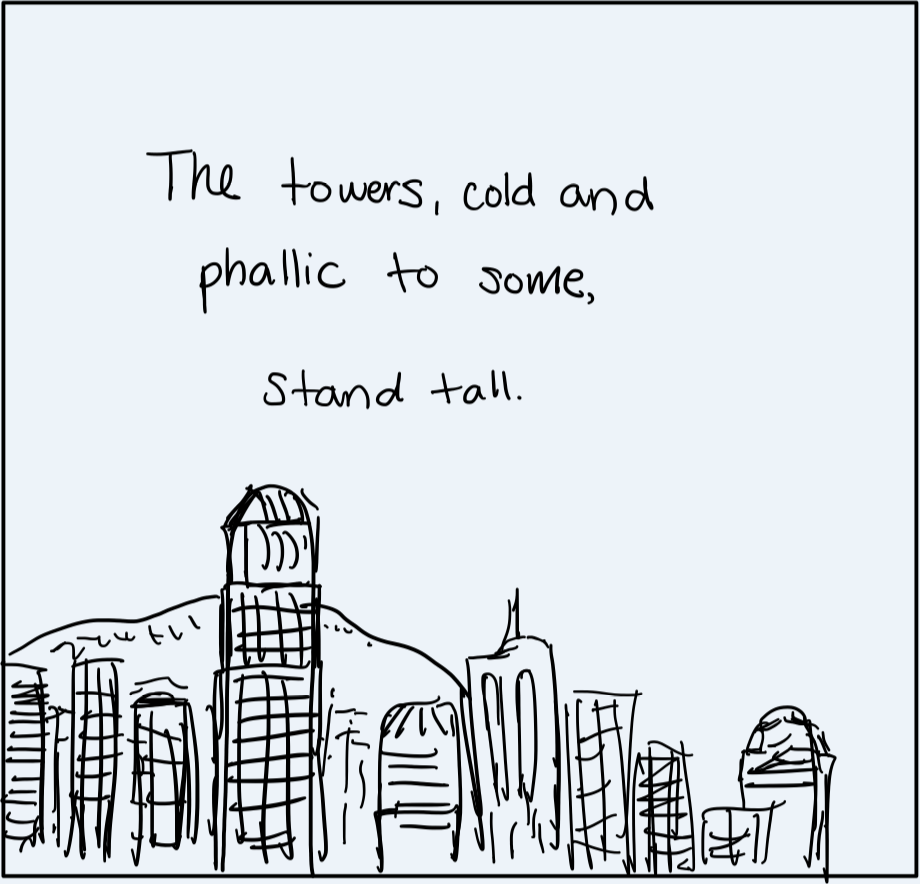 The towers, cold and
phallic to some,
Stand tall.